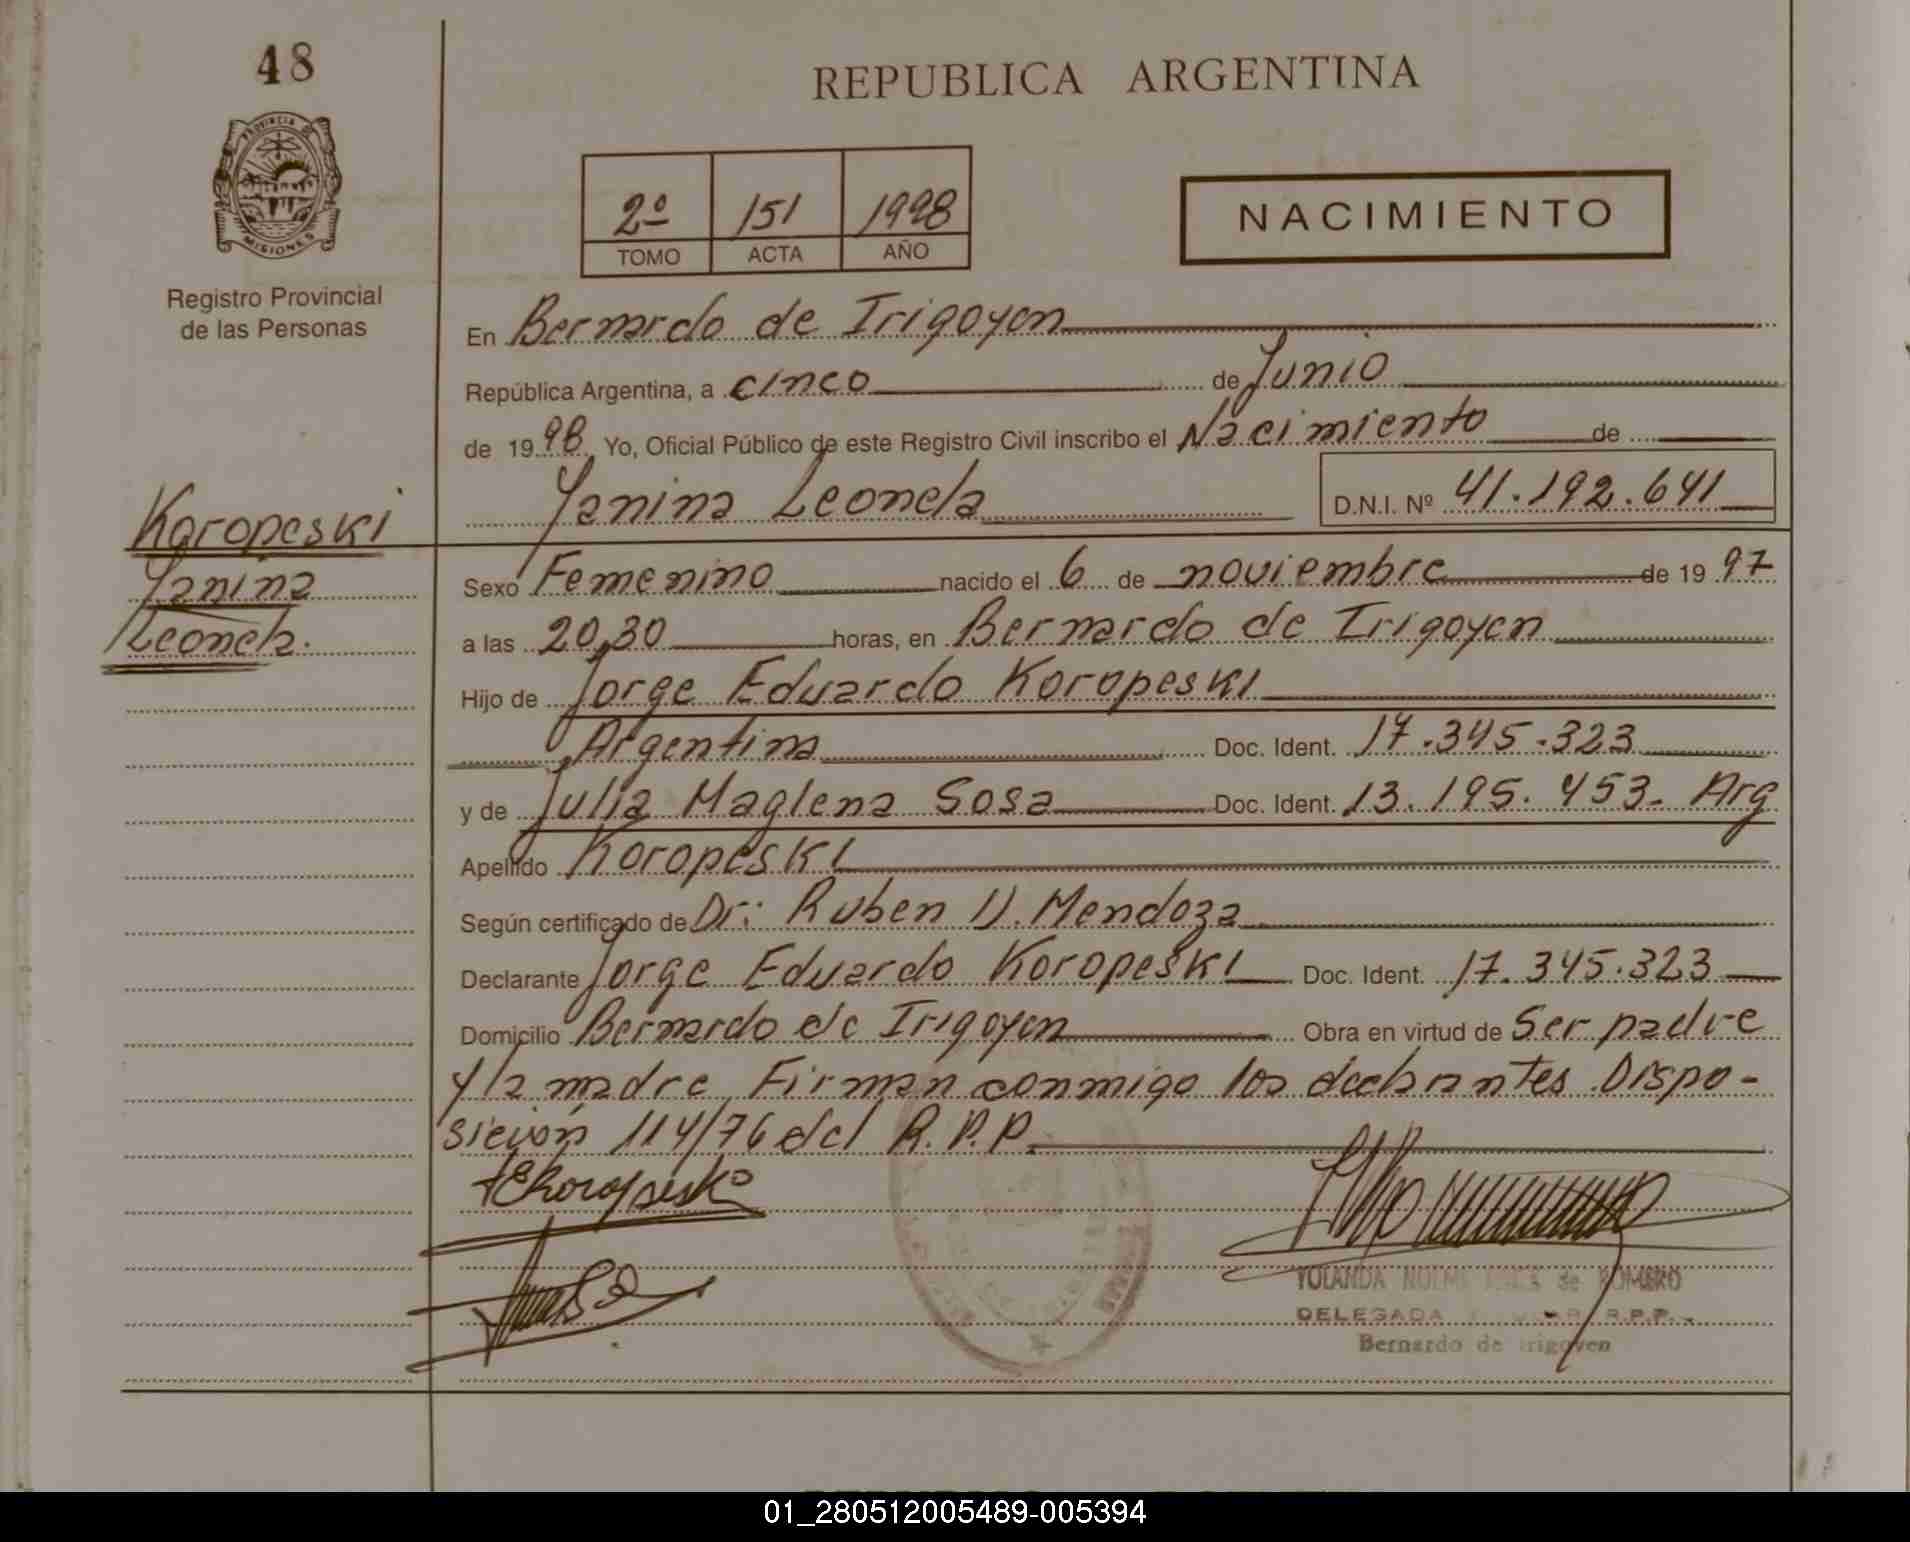 48
REPUBLICA ARGENTINA
PROVINCIA DE
MISIONES
Registro Provincial
de las Personas
2º 151 1998
TOMO ACTA AÑO
NACIMIENTO
En Bernardo de Irigoyen
República Argentina, a cinco de Junio
de 19 98 Yo, Oficial Público de este Registro Civil inscribo el Nacimiento de
Yanina Leonela D.N.I. Nº 41.192.641
Koropeski
Yanina
Leonela.
Sexo Femenino nacido el 6 de noviembre de 19 97
a las 20,30 horas, en Bernardo de Irigoyen
Hijo de Jorge Eduardo Koropeski
Argentina Doc. Ident. 17.345.323
y de Julia Maglena Sosa Doc. Ident. 13.195.453. Arg
Apellido Koropeski
Según certificado de Dr: Ruben D. Mendoza
Declarante Jorge Eduardo Koropeski Doc. Ident. 17.345.323
Domicilio Bernardo de Irigoyen Obra en virtud de Ser padre
y la madre Firman conmigo los declarantes Dispo-
sición 114/76 del R.P.P.
YOLANDA NOEMI de ROMERO
DELEGADA R.P.P.
Bernardo de Irigoyen
01_280512005489-005394